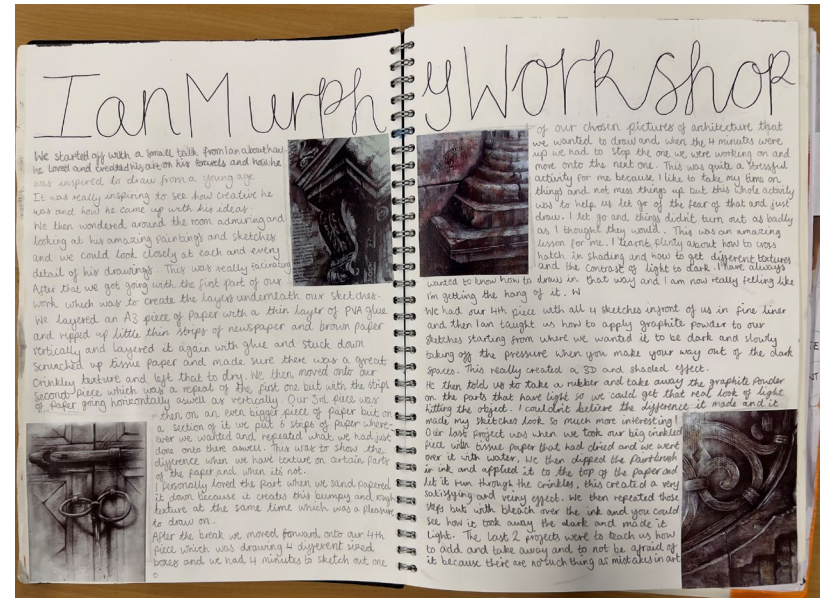 Ian Murphy Workshop
We started off with a small talk from Ian about how
he loved and created his art on his travels and how he
was inspired to draw from a young age.
It was really inspiring to see how creative he
was and how he came up with his ideas
We then wondered around the room admiring and
looking at his amazing paintings and sketches
and we could look closely at each and every
detail of his drawings. This was really
After that we got going with the first part of our
work which was to create the layers underneath our sketches.
We layered an A3 piece of paper with a thin layer of PVA glue
and ripped up little thin strips of newspaper and brown paper
vertically and layered it again with glue and stuck down
scrunched up tissue paper and made sure there was a great
crinkley texture and left that to dry. We then moved onto our
second piece which was a repeat of the first one but with the strips
of paper going horizontally aswell as vertically. Our 3rd piece was
then on an even bigger piece of paper but on
a section of it we put 6 strips of paper where-
ever we wanted and repeated what we had just
done onto there aswell. This was to show the
difference when we have texture on certain parts
of the paper and when its not.
I personally loved the part when we sand papered
it down because it creates this bumpy and rough
texture at the same time which was a pleasure
to draw on.
After the break we moved forward onto our 4th
piece which was drawing 4 different sized
boxes and we had 4 minutes to sketch out one
of our chosen pictures of architecture that
we wanted to draw and when the 4 minutes were
up we had to stop the one we were working on and
move onto the next one. This was quite a stressful
activity for me because I like to take my time on
things and not mess things up but this whole activity
was to help us let go of the fear of that and just
draw. I let go and things didn't turn out as badly
as I thought they would. This was an amazing
lesson for me. I learnt plenty about how to cross
hatch in shading and how to get different textures
and the contrast of light to dark. I have always
wanted to know how to draw in that way and I am now really feeling like
I'm getting the hang of it. W
We had our 4th piece with all 4 sketches infront of us in fine liner
and then Ian taught us how to apply graphite powder to our
sketches starting from where we wanted it to be dark and slowly
taking off the pressure when you make your way out of the dark
spaces. This really created a 3D and shaded effect.
He then told us to take a rubber and take away the graphite powder
on the parts that have light so we could get that real look of light
hitting the object. I couldn't believe the difference it made and it
made my sketches look so much more interesting!
Our last project was when we took our big crinkled
piece with tissue paper that had dried and we went
over it with water. We then dipped the paintbrush
in ink and applied it to the top of the paper and
let it run through the crinkles, this created a very
satisfying and veiny effect. We then repeated those
steps but with bleach over the ink and you could
see how it took away the dark and made it
light. The last 2 projects were to teach us how
to add and take away and to not be afraid of
it because there are no such thing as mistakes in art